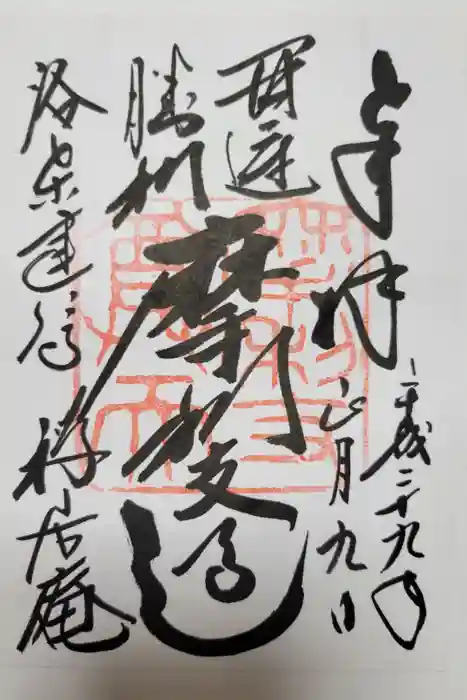 奉拝
平成二十九年
正月九日
開運
勝利
摩利支
洛東建仁
禅居庵